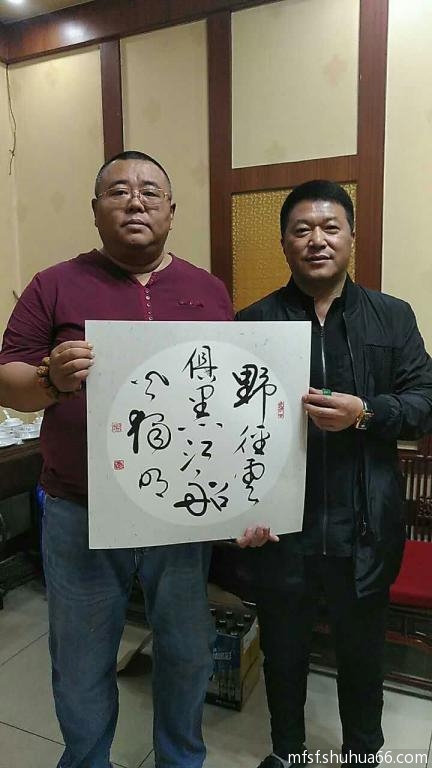 野径雲
俱黑江船
火獨明
mfsf.shuhua66.com